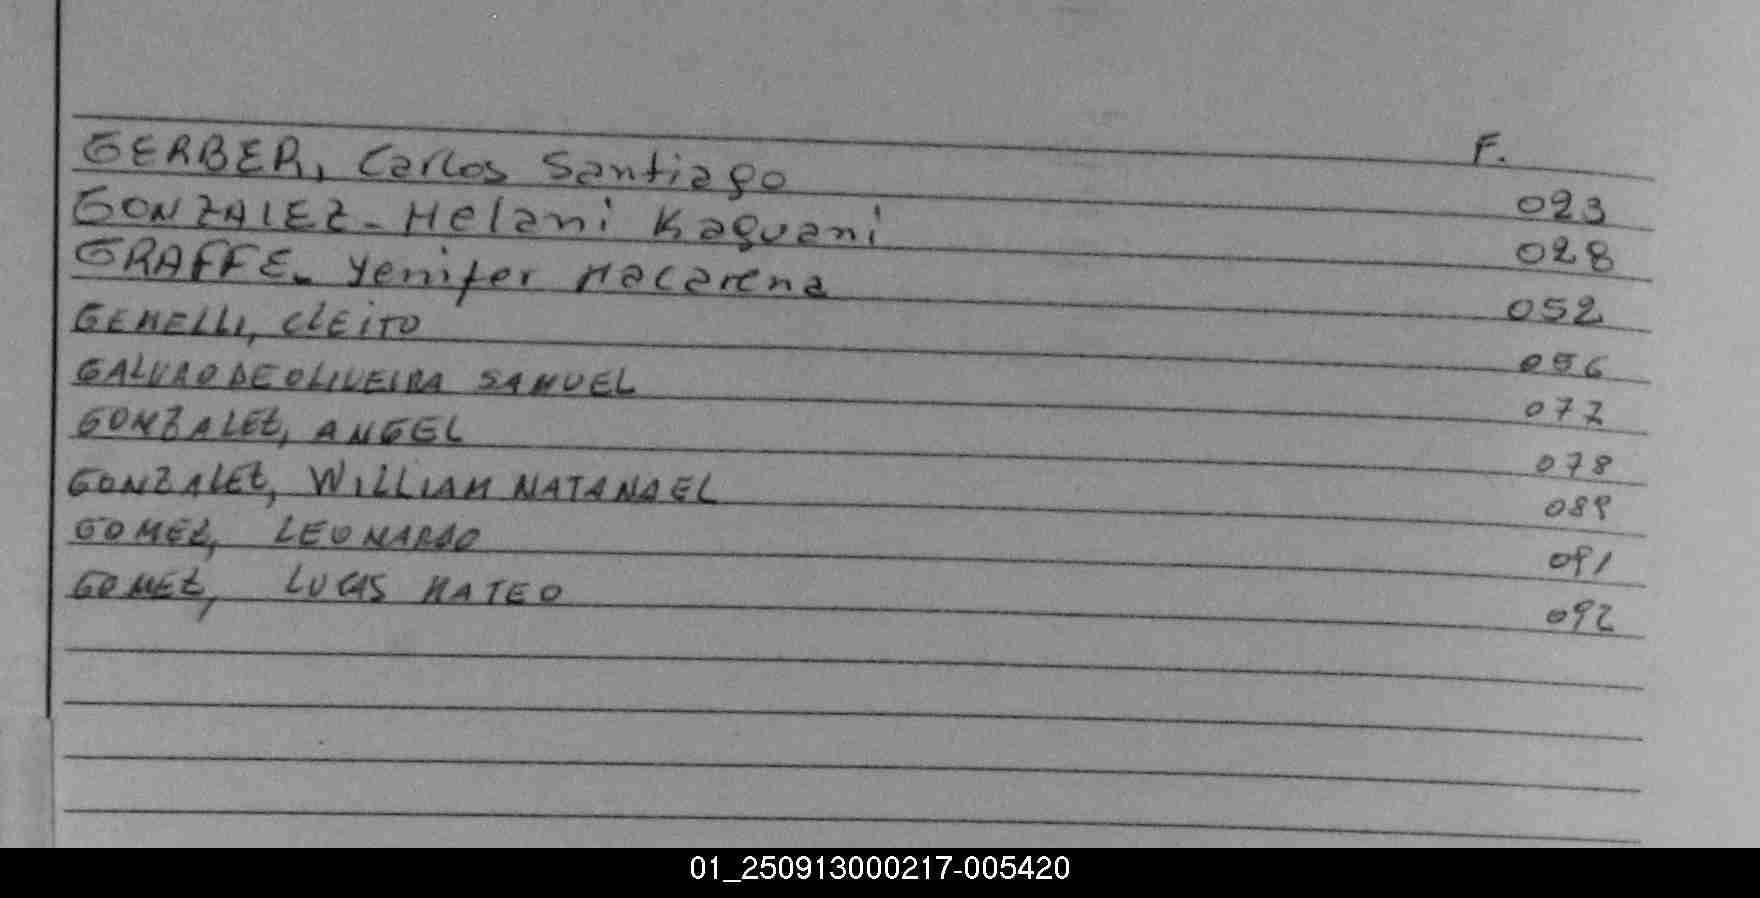 F.
GERBER, Carlos Santiago 023
GONZALEZ - Melani Kaguani 028
GRAFFE - Yenifer Macarena 052
GEMELLI, CLEITO 056
GALVAO DE OLIVEIRA SAMUEL 077
GONZALEZ, ANGEL 078
GONZALEZ, WILLIAM NATANAEL 089
GOMEZ, LEONARDO 091
GOMEZ, LUCAS MATEO 092
01_250913000217-005420